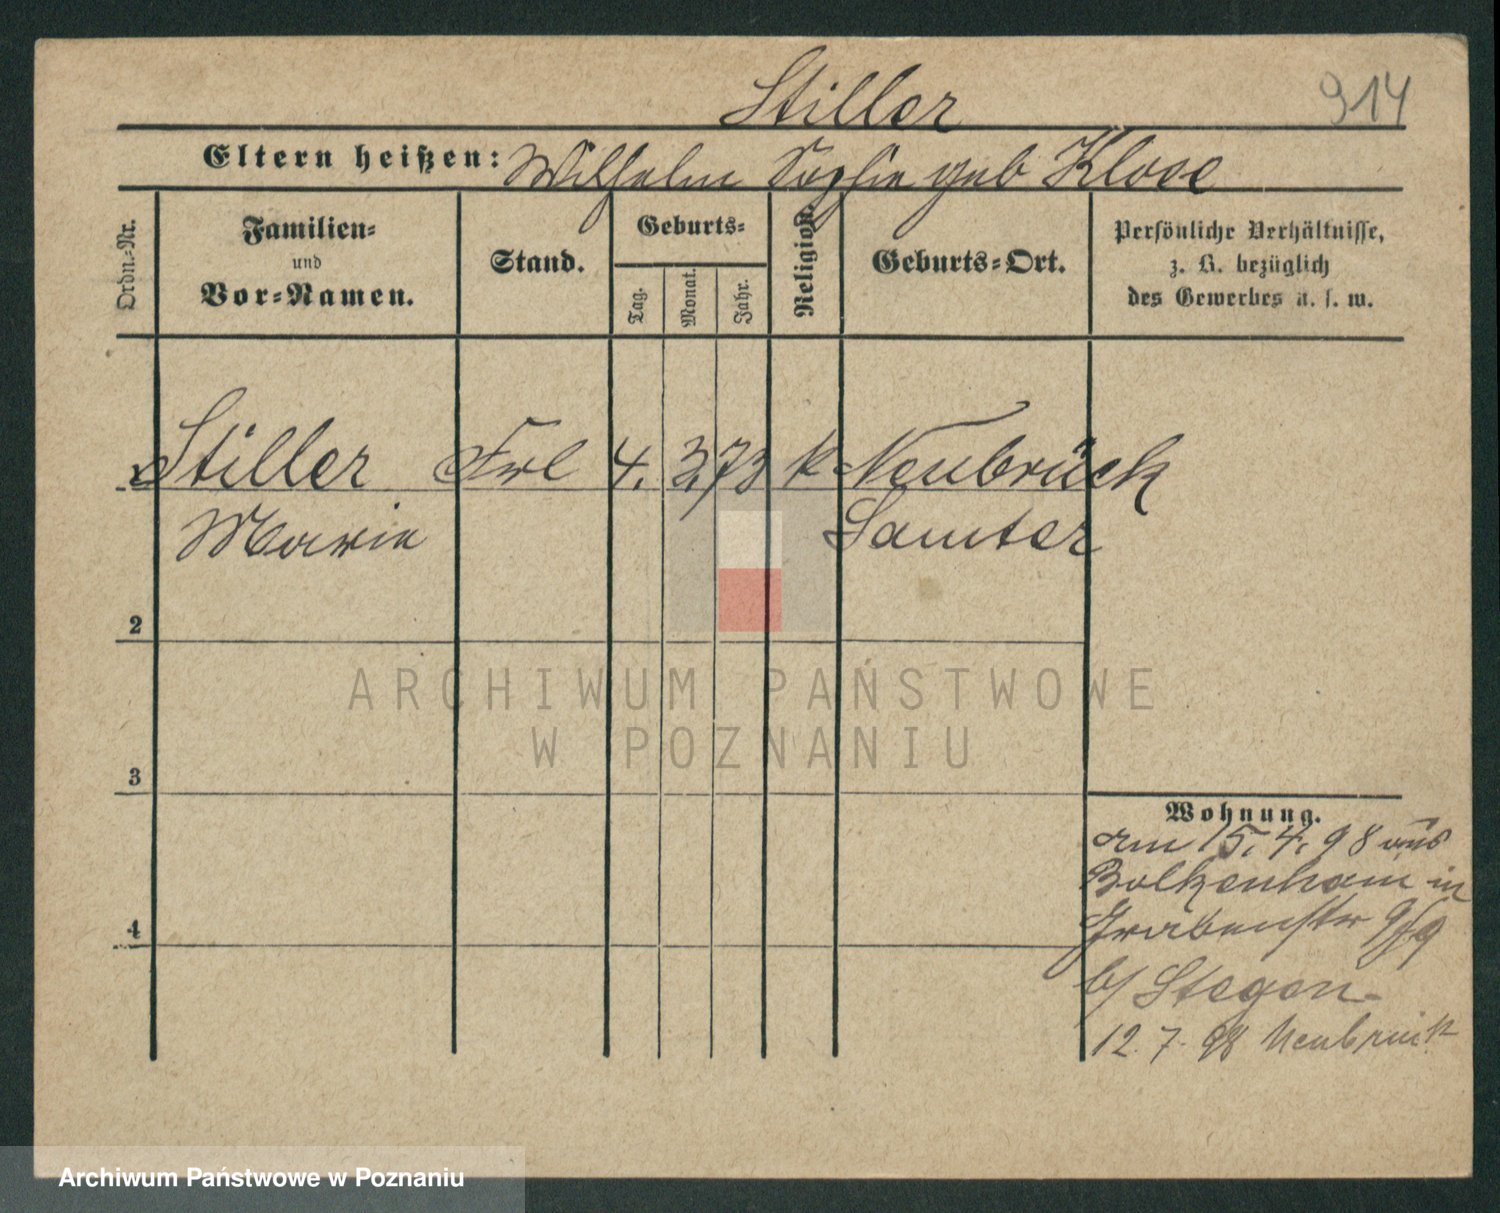 Stiller
914
Eltern heißen: Wilhelm Sophie geb Klose
Ordn.-Nr.
Familien-
und
Vor-Namen.
Stand.
Geburts-
Tag.
Monat.
Jahr.
Religion.
Geburts-Ort.
Persönliche Verhältnisse,
z. B. bezüglich
des Gewerbes u. s. w.
1 Stiller Frl 4. 3. 73 k Neubrück
Marie Samter
2
ARCHIWUM PAŃSTWOWE
W POZNANIU
3
Wohnung.
am 15. 4. 98 aus
Bolkenhain in
Grabenstr
b/ Stegen
4
12. 7. 98 Neubrück
Archiwum Państwowe w Poznaniu